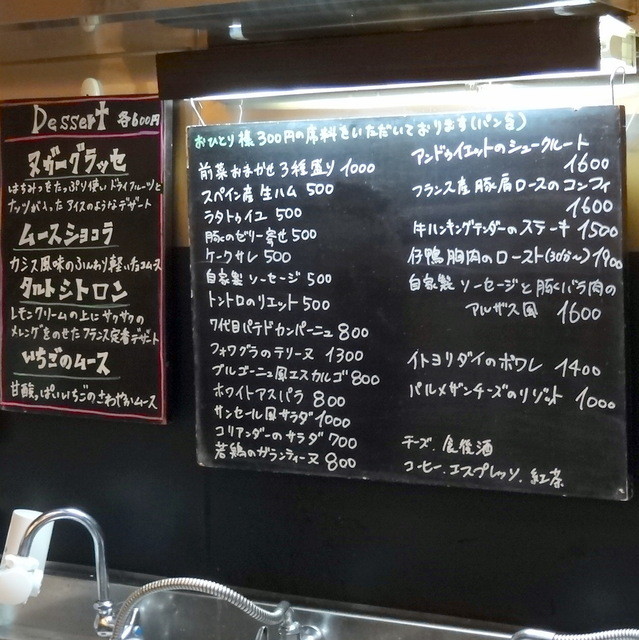 Dessert 各600円
ヌガーグラッセ
はちみつをたっぷり使いドライフルーツと
ナッツが入ったアイスのようなデザート
ムースショコラ
カシス風味のふんわり軽いチョコムース
タルトシトロン
レモンクリームの上にサクサクの
メレンゲをのせたフランス定番デザート
いちごのムース
甘酸っぱいいちごのさわやかムース
おひとり様300円の席料をいただいております(パン含)
前菜おまかせ3種盛り 1000
スペイン産生ハム 500
ラタトゥイユ 500
豚のゼリー寄せ 500
ケークサレ 500
自家製ソーセージ 500
トントロのリエット 500
7代目パテドカンパーニュ 800
フォワグラのテリーヌ 1300
ブルゴーニュ風エスカルゴ 800
ホワイトアスパラ 800
サンセール風サラダ 1000
コリアンダーのサラダ 700
若鶏のガランティーヌ 800
アンドゥイエットのシュークルート
1600
フランス産豚肩ロースのコンフィ
1600
牛ハンギングテンダーのステーキ 1500
仔鴨胸肉のロースト(30分〜) 1900
自家製ソーセージと豚バラ肉の
アルザス風 1600
イトヨリダイのポワレ 1400
パルメザンチーズのリゾット 1000
チーズ.食後酒
コーヒー.エスプレッソ.紅茶